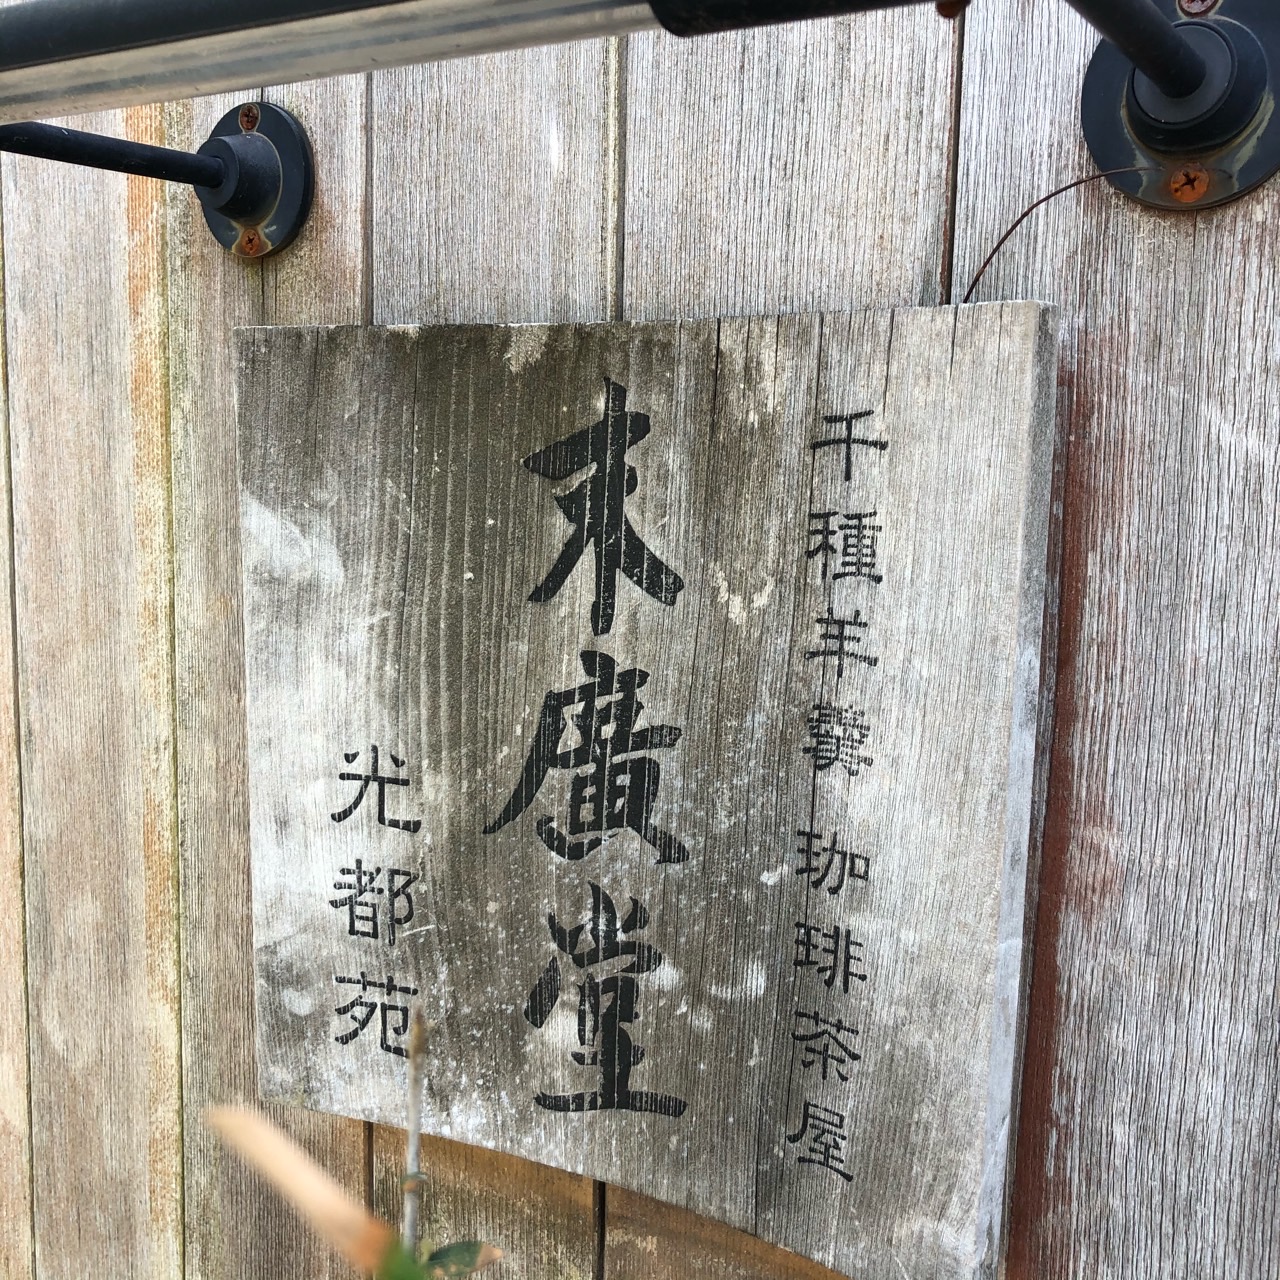 千種羊羹 珈琲茶屋
末廣堂
光都苑